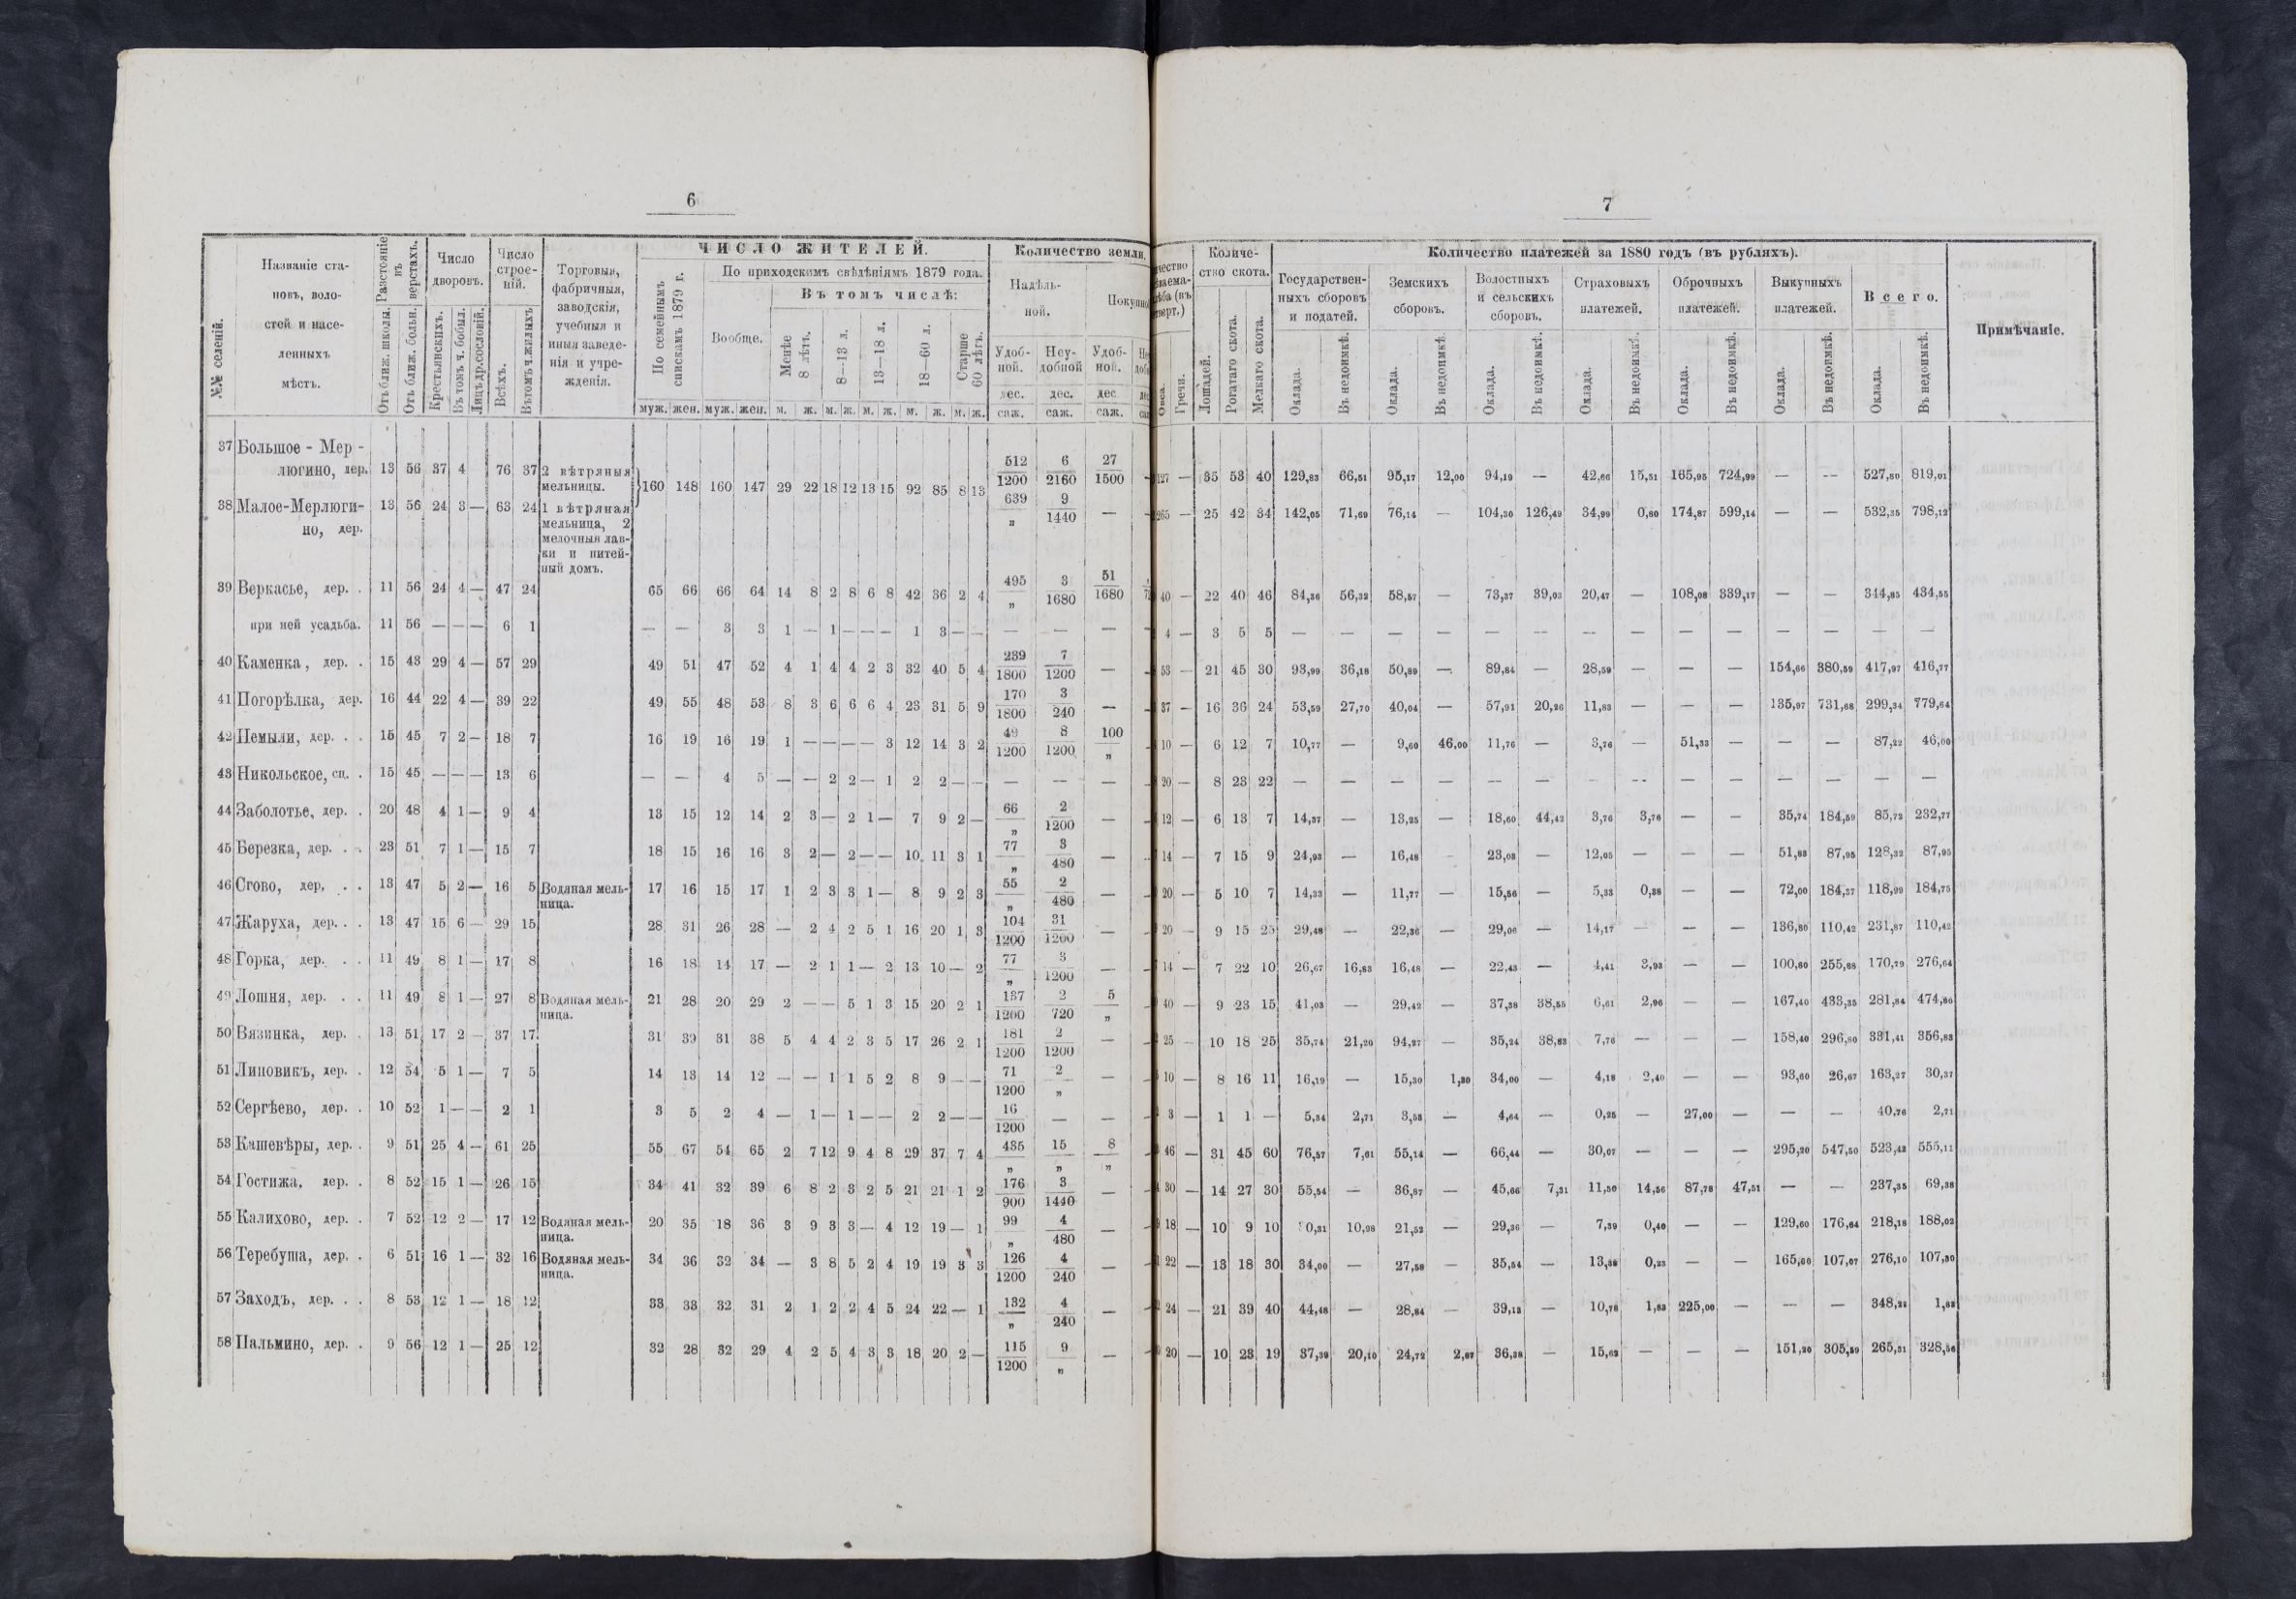 6
№№ селеній.
Названіе становъ, волостей и населенныхъ мѣстъ.
Разстояніе въ верстахъ.
Отъ ближ. школы.
Отъ ближ. больн.
Число дворовъ.
Крестьянскихъ.
Въ томъ ч. бобыл.
Лицъ др. сословій.
Число строеній.
Всѣхъ.
Въ томъ ч. жилыхъ
Торговыя, фабричныя, заводскія, учебныя и иныя заведенія и учрежденія.
ЧИСЛО ЖИТЕЛЕЙ.
По семейнымъ спискамъ 1879 г.
По приходскимъ свѣдѣніямъ 1879 года.
Вообще.
Въ томъ числѣ:
Менѣе 8 лѣтъ.
8—13 л.
13—18 л.
18—60 л.
Старше 60 лѣтъ.
муж. жен. муж. жен. м. ж. м. ж. м. ж. м. ж. м. ж.
Количество земли.
Надѣльной.
Удобной.
Неудобной
Удобной.
дес. дес. дес.
саж. саж. саж.
37 Большое - Мерлюгино, дер. 13 56 37 4 76 37 2 вѣтряныя мельницы. 160 148 160 147 29 22 18 12 13 15 92 85 8 13 512/1200 6/2160 27/1500
38 Малое-Мерлюгино, дер. 13 56 24 3 — 63 24 1 вѣтряная мельница, 2 мелочныя лавки и питейный домъ. 639/„ 9/1440 —
39 Веркасье, дер. . 11 56 24 4 — 47 24 65 66 66 64 14 8 2 8 6 8 42 36 2 4 495/„ 3/1680 51/1680
при ней усадьба. 11 56 — — — 6 1 — — 3 3 1 — 1 — — — 1 3 — — — — —
40 Каменка, дер. . 15 43 29 4 — 57 29 49 51 47 52 4 1 4 4 2 3 32 40 5 4 239/1800 7/1200 —
41 Погорѣлка, дер. 16 44 22 4 — 39 22 49 55 48 53 8 3 6 6 6 4 23 31 5 9 170/1800 3/240 —
42 Немыли, дер. . . 15 45 7 2 — 18 7 16 19 16 19 1 — — — — 3 12 14 3 2 49/1200 8/1200 100/„
43 Никольское, сц. . 15 45 — — — 13 6 — — 4 5 — — 2 2 — 1 2 2 — — — — —
44 Заболотье, дер. . 20 48 4 1 — 9 4 13 15 12 14 2 3 — 2 1 — 7 9 2 — 66/„ 2/1200 —
45 Березка, дер. . . 23 51 7 1 — 15 7 18 15 16 16 3 2 — 2 — — 10 11 3 1 77/„ 3/480 —
46 Сгово, дер. . . 13 47 5 2 — 16 5 Водяная мельница. 17 16 15 17 1 2 3 3 1 — 8 9 2 3 55/„ 2/480 —
47 Жаруха, дер. . . 13 47 15 6 — 29 15 28 31 26 28 — 2 4 2 5 1 16 20 1 3 104/1200 31/1200 —
48 Горка, дер. . . 11 49 8 1 — 17 8 16 18 14 17 — 2 1 1 — 2 13 10 — 2 77/„ 3/1200 —
49 Лошня, дер. . . 11 49 8 1 — 27 8 Водяная мельница. 21 28 20 29 2 — — 5 1 3 15 20 2 1 137/1200 2/720 5/„
50 Вязинка, дер. . 13 51 17 2 — 37 17 31 39 31 38 5 4 4 2 3 5 17 26 2 1 181/1200 2/1200 —
51 Липовикъ, дер. . 12 54 5 1 — 7 5 14 13 14 12 — — 1 1 5 2 8 9 — — 71/1200 2/„ —
52 Сергѣево, дер. . 10 52 1 — — 2 1 3 5 2 4 — 1 — 1 — — 2 2 — — 16/1200 — —
53 Кашевѣры, дер. . 9 51 25 4 — 61 25 55 67 54 65 2 7 12 9 4 8 29 37 7 4 435/„ 15/„ 8/„
54 Гостижа, дер. . 8 52 15 1 — 26 15 34 41 32 39 6 8 2 3 2 5 21 21 1 2 176/900 3/1440 —
55 Калихово, дер. . 7 52 12 2 — 17 12 Водяная мельница. 20 35 18 36 3 9 3 3 — 4 12 19 — 1 99/„ 4/480 —
56 Теребуша, дер. . 6 51 16 1 — 32 16 Водяная мельница. 34 36 32 34 — 3 8 5 2 4 19 19 3 3 126/1200 4/240 —
57 Заходъ, дер. . . 8 53 12 1 — 18 12 33 33 32 31 2 1 2 2 4 5 24 22 — 1 132/„ 4/240 —
58 Пальмино, дер. . 9 56 12 1 — 25 12 32 28 32 29 4 2 5 4 3 3 18 20 2 — 115/1200 9/„ —
7
Овса.
Гречи.
Количество скота.
Лошадей.
Рогатаго скота.
Мелкаго скота.
Количество платежей за 1880 годъ (въ рубляхъ).
Государственныхъ сборовъ и податей.
Земскихъ сборовъ.
Волостныхъ и сельскихъ сборовъ.
Страховыхъ платежей.
Оброчныхъ платежей.
Выкупныхъ платежей.
Всего.
Оклада. Въ недоимкѣ. Оклада. Въ недоимкѣ. Оклада. Въ недоимкѣ. Оклада. Въ недоимкѣ. Оклада. Въ недоимкѣ. Оклада. Въ недоимкѣ. Оклада. Въ недоимкѣ.
Примѣчаніе.
127 — 35 53 40 129,83 66,51 95,17 12,00 94,19 — 42,66 15,51 165,95 724,99 — — 527,80 819,01
265 — 25 42 34 142,05 71,69 76,14 — 104,30 126,49 34,99 0,80 174,87 599,14 — — 532,35 798,12
40 — 22 40 46 84,36 56,32 58,57 — 73,37 39,03 20,47 — 108,08 339,17 — — 344,85 434,55
4 — 3 5 5 — — — — — — — — — — — — — —
53 — 21 45 30 93,99 36,18 50,89 — 89,84 — 28,59 — — — 154,66 380,59 417,97 416,77
37 — 16 36 24 53,59 27,70 40,04 — 57,91 20,26 11,83 — — — 135,97 731,68 299,34 779,64
10 — 6 12 7 10,77 — 9,60 46,00 11,76 — 3,76 — 51,33 — — — 87,22 46,00
20 — 8 23 22 — — — — — — — — — — — — — —
12 — 6 13 7 14,37 — 13,25 — 18,60 44,42 3,76 3,76 — — 35,74 184,59 85,72 232,77
14 — 7 15 9 24,93 — 16,48 — 23,03 — 12,05 — — — 51,83 87,95 128,32 87,95
20 — 5 10 7 14,33 — 11,77 — 15,56 — 5,33 0,38 — — 72,00 184,37 118,99 184,75
20 — 9 15 25 29,48 — 22,36 — 29,06 — 14,17 — — — 136,80 110,42 231,87 110,42
14 — 7 22 10 26,67 16,83 16,48 — 22,43 — 4,41 3,93 — — 100,80 255,88 170,79 276,64
40 — 9 23 15 41,03 — 29,42 — 37,38 38,55 6,61 2,96 — — 167,40 433,35 281,84 474,86
25 — 10 18 25 35,74 21,20 94,27 — 35,24 38,83 7,76 — — — 158,40 296,80 331,41 356,83
10 — 8 16 11 16,19 — 15,30 1,30 34,00 — 4,18 2,40 — — 93,60 26,67 163,27 30,37
3 — 1 1 — 5,34 2,71 3,53 — 4,64 — 0,25 — 27,00 — — — 40,76 2,71
46 — 31 45 60 76,57 7,61 55,14 — 66,44 — 30,07 — — — 295,20 547,50 523,42 555,11
30 — 14 27 30 55,54 — 36,87 — 45,66 7,31 11,50 14,56 87,78 47,51 — — 237,35 69,38
18 — 10 9 10 0,31 10,98 21,52 — 29,36 — 7,39 0,40 — — 129,60 176,64 218,18 188,02
22 — 13 18 30 34,00 — 27,58 — 35,54 — 13,38 0,23 — — 165,60 107,07 276,10 107,30
24 — 21 39 40 44,48 — 28,84 — 39,13 — 10,78 1,83 225,00 — — — 348,23 1,83
20 — 10 23 19 37,39 20,10 24,72 2,87 36,38 — 15,62 — — — 151,20 305,59 265,31 328,56